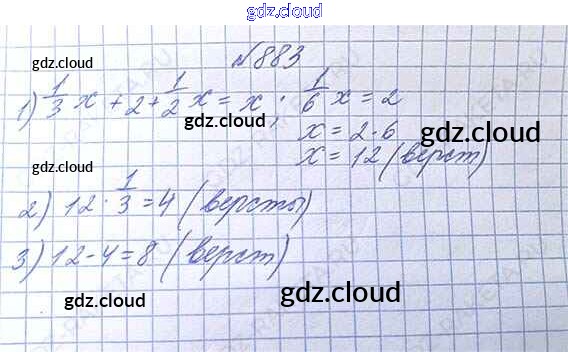 gdz.cloud
gdz.cloud
№883
gdz.cloud
1) 1/3 x + 2 + 1/2 x = x ; 1/6 x = 2
gdz.cloud
x = 2·6
gdz.cloud
x = 12 (верст)
gdz.cloud
2) 12 · 1/3 = 4 (версты)
3) 12 - 4 = 8 (верст)
gdz.cloud
gdz.cloud